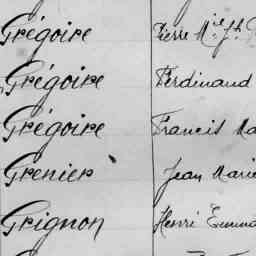 Grégoire Pierre Mie Jh
Grégoire Ferdinand
Grégoire Francis Ma
Grenier Jean Marie
Grignon Henri Emma